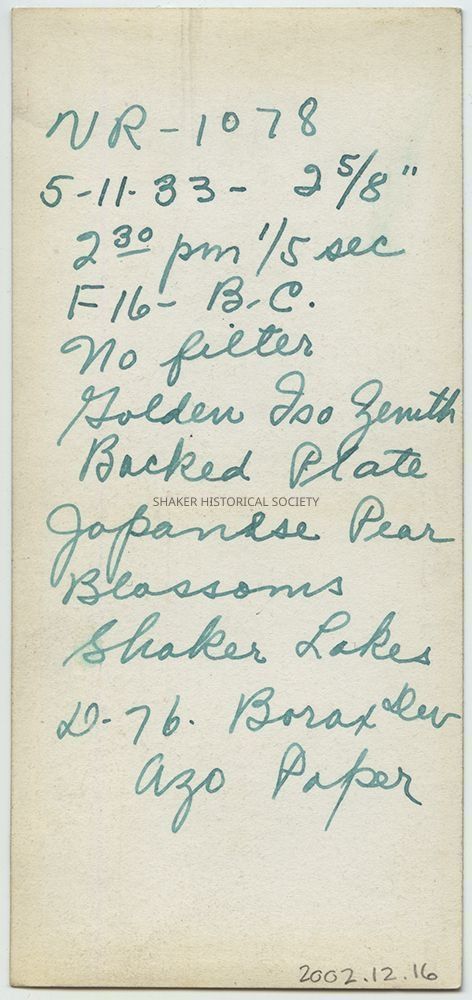 NR-1078
5-11-33- 2 5/8"
2 30 pm 1/5 sec
F16- B.C.
No filter
Golden Iso Zenith
Backed Plate
SHAKER HISTORICAL SOCIETY
Japanese Pear
Blossoms
Shaker Lakes
D-76. Borax Dev
Azo Paper
2002.12.16